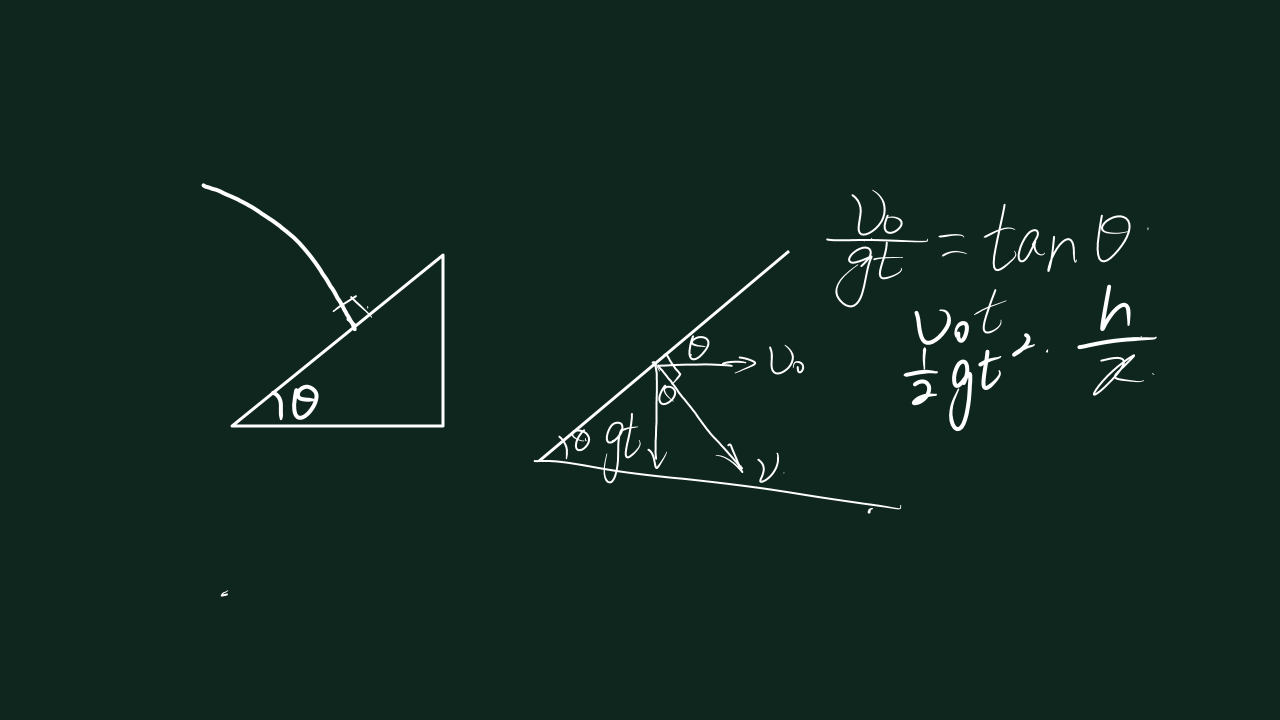 θ
θ
θ
θ
gt
v₀
v
v₀/gt = tan θ
v₀t
½gt²
h/x